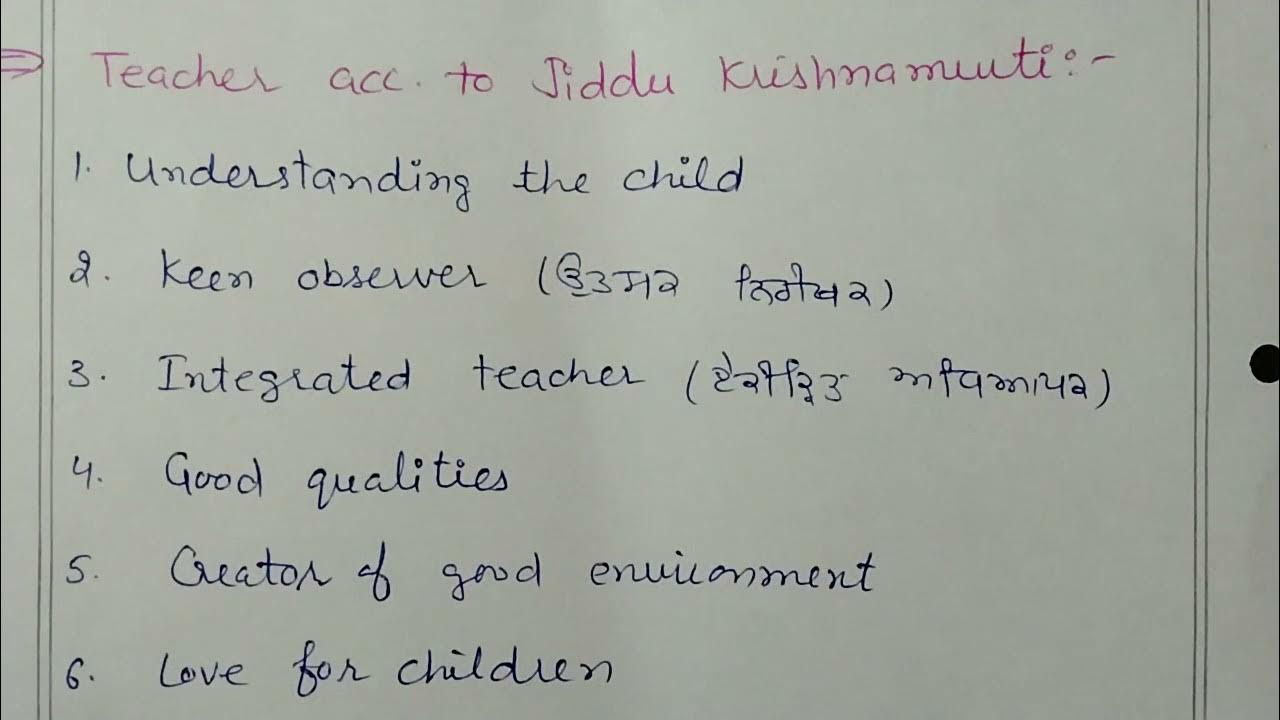 ⇒ Teacher acc. to Jiddu Krishnamurti:-
1. Understanding the child
2. Keen observer (ਉਤਸਕ ਨਿਰੀਖਕ)
3. Integrated teacher (ਏਕੀਕ੍ਰਿਤ ਅਧਿਆਪਕ)
4. Good qualities
5. Creator of good environment
6. Love for children